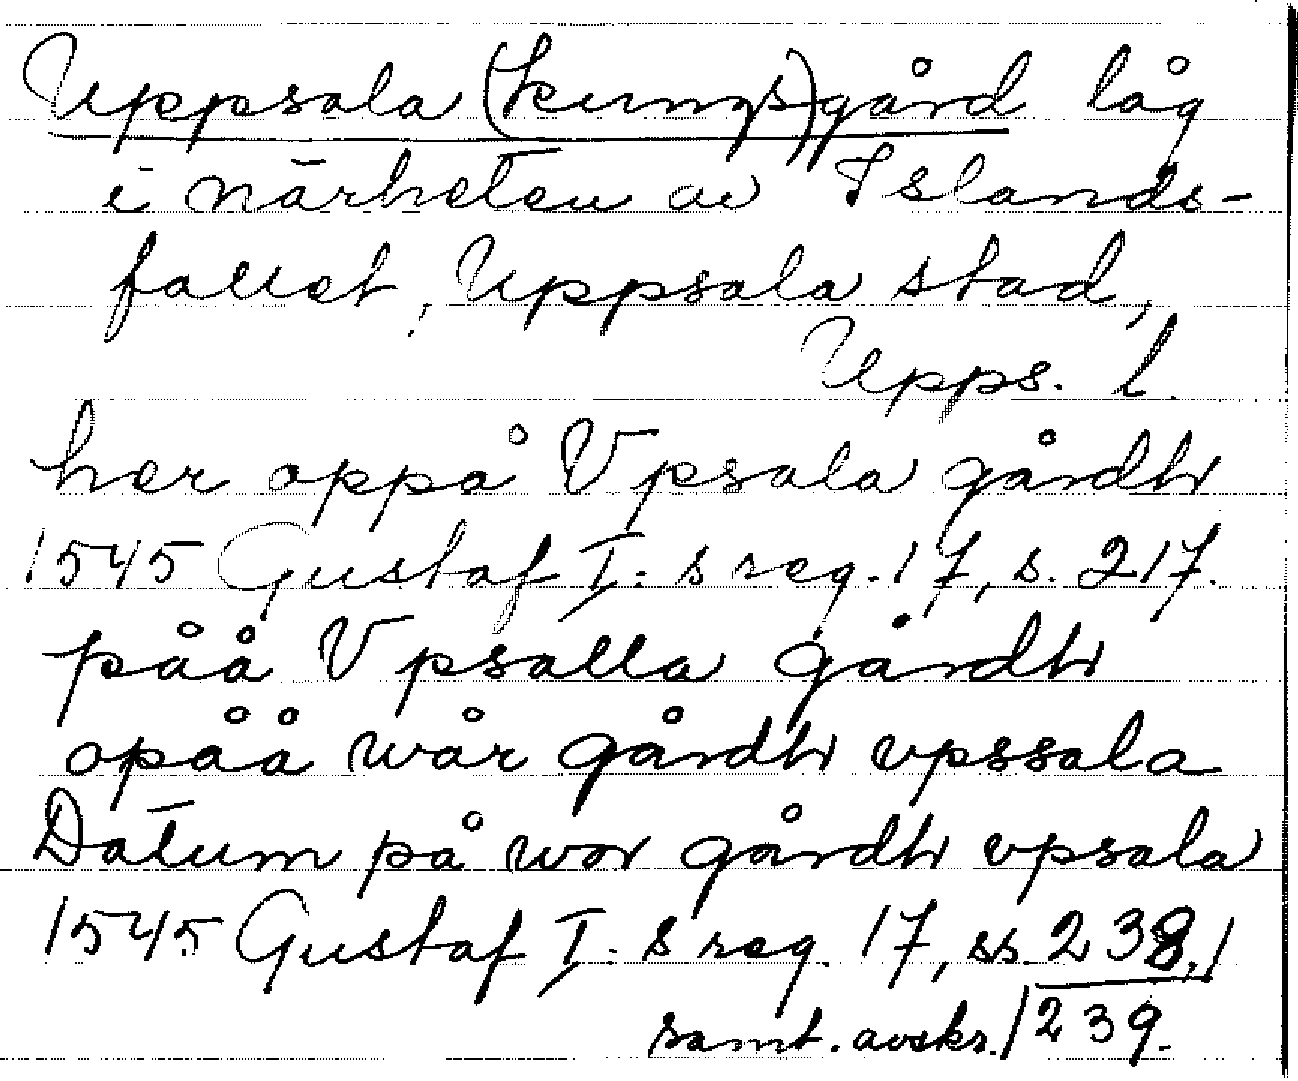 Uppsala (kungs)gård låg
i närheten av Islands-
fallet, Uppsala stad,
Upps. l.
her oppå Vpsala gårdh
1545 Gustaf I:s reg. 17, s. 217.
påå Vpsalla gårdh
opåå wår gårdh vpssala
Datum på wor gårdh vpsala
1545 Gustaf I:s reg. 17, ss. 238,
samt. avskr. 239.